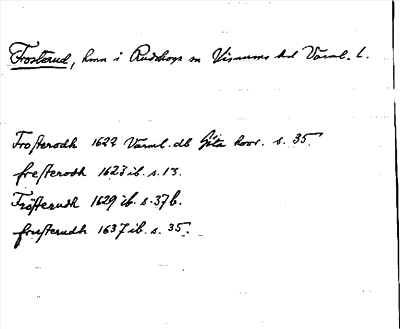 Frosterud, hmn i Rudskoga sn Visnums hd Värml. L.
Frosterodh 1622 Värml. db Göta hovr. s. 35.
fresterodh 1623 ib. s. 13.
Frösterudh 1629 ib. s. 37 b.
frusterudh 1637 ib. s. 35.